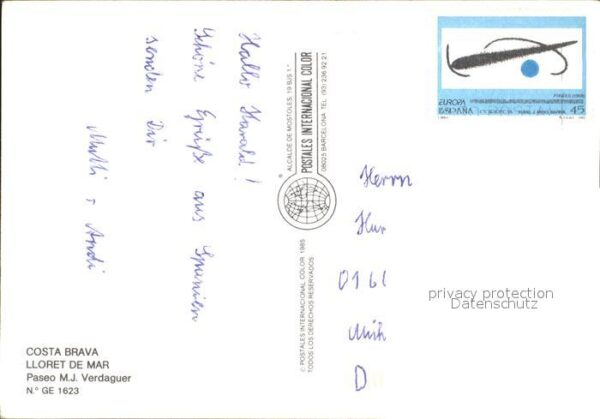 Hallo Harald!
Schöne Grüße aus Spanien
senden Dir
Mutti + Andi
COSTA BRAVA
LLORET DE MAR
Paseo M.J. Verdaguer
N.º GE 1623
ALCALDE DE MOSTOLES, 19 BJS 1.ª
POSTALES INTERNACIONAL COLOR
08025 BARCELONA TEL. (93) 236 92 21
© POSTALES INTERNACIONAL COLOR, 1985
TODOS LOS DERECHOS RESERVADOS
EUROPA
ESPAÑA
45
Herrn
D
privacy protection
Datenschutz